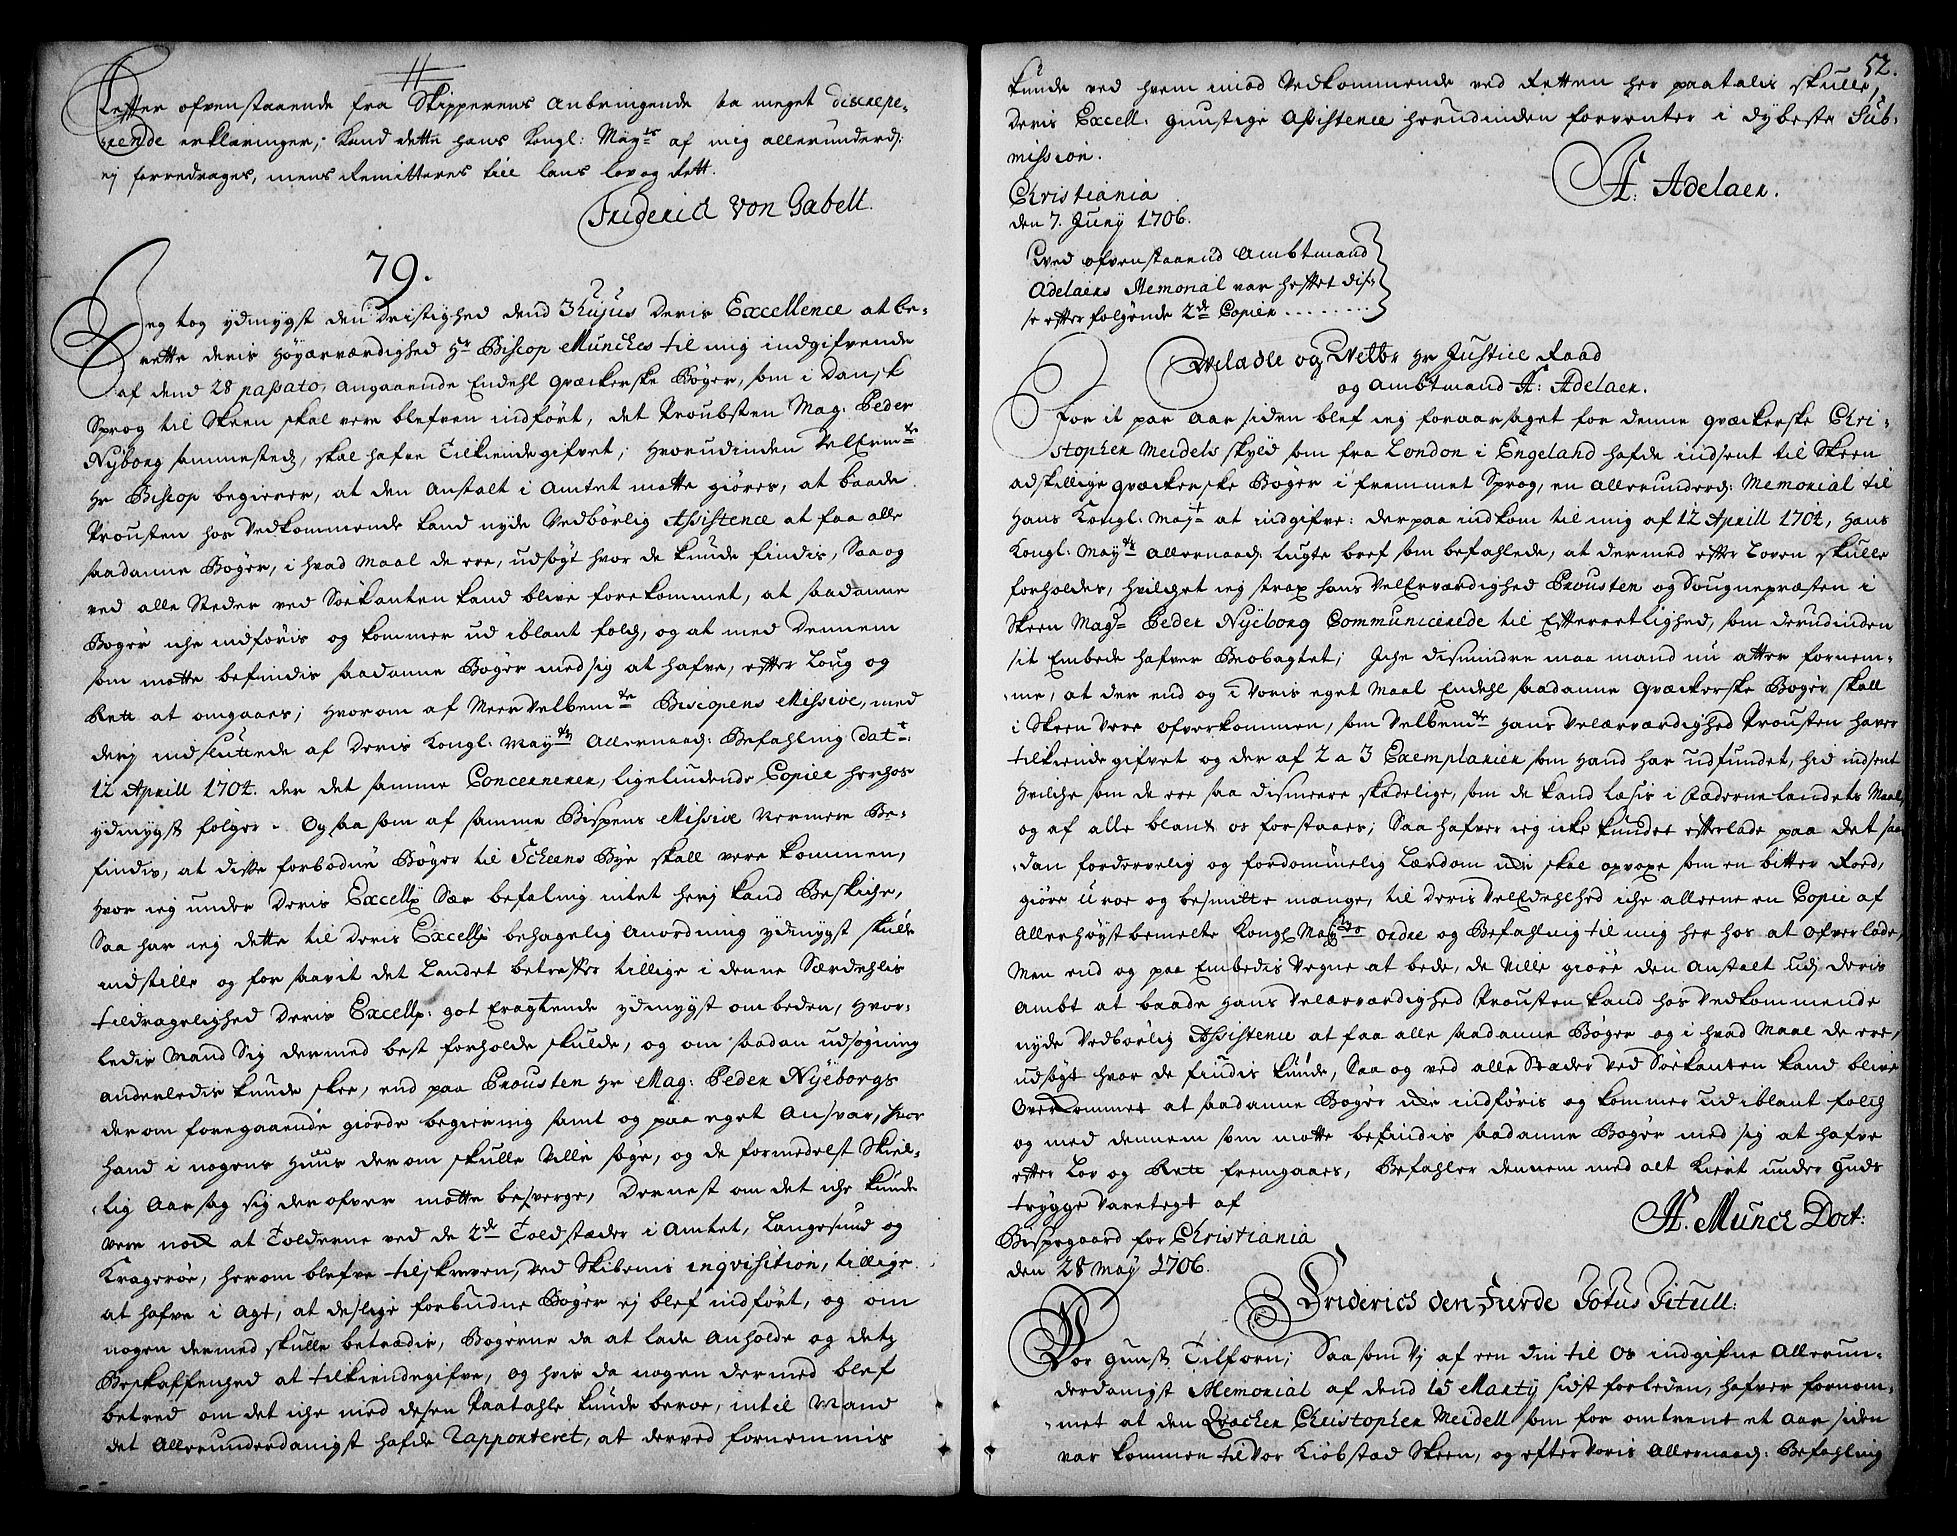 H
Efter ofvenstaaende fra Skipperens Anbringende saa meget discrepe-
rende erklaringer; Kand dette hans Kongl: Mayts af mig allerunderd:
ej forredrages, mens Remitteres till lans lov og Rett.
Friderich Von Gabell.
79.
Jeg tog ydmygst den Dristighed dend 3 hujus Deris Excellence at be-
rette deris Høyærværdighed Hr Biscop Munches til mig indgifvende
af dend 28 passato, angaaende Endehl qvæckerske Bøger, som i Dansk
Sprog til Skeen skal vere blefven indført, det Proubsten Mag: Peder
Nyborg sammesteds, skal hafve Tilkiendegifvet; hvorudinden Velbem:te
Hr Biscop begierer, at den Anstalt i Amtet motte giøres, at baade
Prousten hos Vedkommende kand nyde Vedbørlig Assistence at faa alle
saadanne Bøger, i hvad Maal de ere, udsøgt hvor de kunde findis, Saa og
ved alle Steder ved Søekanten kand blive forekommet, at saadanne
Bøger iche indføris og kommer ud iblant folch, og at med Dennem
som motte befindis saadanne Bøger med sig at hafve, efter Loug og
Rett at omgaaes; hvorom af Meer Velbem:te Biscopens Missive, med
derj indsluttede af Deris Kongl: May:ts Allernaad: Befahling Dat:
12 Aprill 1704. der det samme Concernerer, ligeliudende Copier herhos
ydmygst følger. Og saasom af samme Bispens Missive Vermere Be-
findis, at disse forbødne Bøger til Scheens Bye skall vere kommen,
hvor ieg under Deris Excell: Sær befaling intet herj kand Beskiche,
Saa har ieg dette til Deris Excell: behagelig Anordning ydmygst skulle
indstille og for saavit det Landet betreffer tillige i denne Særdehlis
tildragelighed Deris Excell: got Eragtende ydmygst ombeden, hvor-
ledis Mand Sig dermed best forholde skulde, og om saadan udsøgning
anderledis kunde skee, end paa Prousten Hr Mag: Peder Nyeborgs
derom foregaaende giorde begiering samt og paa eget Ansvar, hvor
hand i nogens Huus derom skulle Ville søge, og de formedelst Skiel-
lig Aarsag sig derofver motte besverge, Dernest om det iche kunde
vere nock at Tolderne ved de 2de Toldstæder i Amtet, Langesund og
Kragerøe, herom blefve tilskreven, ved Skibenis inqvisition, tillige
at hafve i Agt, at deslige forbudne Bøger ej blef indført, og om
nogen dermed skulle betrædis, Bøgerne da at lade Anholde og detz
Beskaffenhed at tilkiendegifve, og hvis da nogen dermed blef
betred om det iche med desen Paatahle kunde beroe, intil Mand
det Allerunderdanigst hafde Rapporteret, at derved fornemmis
52.
kunde ved hvem imod Vedkommende ved Retten her paatalis skulle,
Deris Excell: gunstige Assistence herudinden forventer i dybeste Sub-
mission.
Christiania
den 7. Junij 1706.
F: Adelaer.
Ved ofvenstaaend Ambtmand
Adelaers Memorial var heftet dis-
se efterfølgende 2de Copier
Velædle og Velb:r Hr Justice Raad
og Ambtmand F: Adelaer.
For it par Aar siden blef ieg foraarsaget for denne qvæckerske Chri-
stopher Meidels skyld som fra London i Engeland hafde indsent til Skeen
adskillige qvæckerske Bøger i fremmet Sprog, en Allerunderd: Memorial til
Hans Kongl: May:t at indgifve: derpaa indkom til mig af 12 Aprill 1704, Hans
Kongl: May:ts Allernaad: lugte bref som befahlede, at dermed efter Loven skulle
forholdes, hvilchet ieg strax hans Velærværdighed Prousten og Sougnepræsten i
Skeen Mag:r Peder Nyeborg Communicerede til Efterretlighed, som derudinden
sit Embede hafver Beobagtet; Iche dismindre maa mand nu atter fornem-
me, at der end og i Voris eget Maal Endehl saadanne Qvæckerske Bøger skall
i Skeen Vere ofverkommen, som Velbem:te Hans Velærværdighed Prousten haver
tilkiendegifvet og der af 2 a 3 Exemplarier som hand har udfundet, hid indsent
Hvilche som de ere saa dismeere skadelige, som de kand læsis i Fæderne landets Maal
og af alle blant os forstaaes; Saa hafver ieg icke kundet efterlade paa det saa-
dan fordervelig og fordømmelig Lærdom icke skal opvoxe som en bitter Roed,
giøre uroe og besmitte mange, til Deris VelEdelhed iche alleene en Copie af
Allerhøystbemelte Kongl: May:ts ordre og Befahling til mig her hos at ofverlade,
Men end og paa Embedis Vegne at bede, de Ville giøre den Anstalt udj deris
Ambt at baade Hans Velærværdighed Prousten kand hos Vedkommende
nyde Vedbørlig Assistence at faa alle saadanne Bøger og i hvad Maal de ere,
udsøgt hvor de findis kunde, Saa og ved alle Stæder Ved Søekanten kand blive
Overkommet at saadanne Bøger icke indføris og kommer ud iblant folch
og med dennem som motte befindis saadanne Bøger med sig at hafve
efter Lov og Rett fremgaaes, Befahler dennem med alt kiert under Guds
trygge Varetegt af
Bispegaard for Christiania
den 28 May 1706.
H. Munch Doct:
Friderich den Fierde Totus Titull:
Vor gunst Tilforn; Saasom Vj af een din til Os indgifne Allerun-
derdanigst Memorial af dend 15 Martij sidst forleden, hafver fornom-
met at den Qvæcker Christopher Meidell som for omtrent et Aar siden
var kommen til Vor Kiøbstad Skeen, og efter Voris Allernaad: Befahling